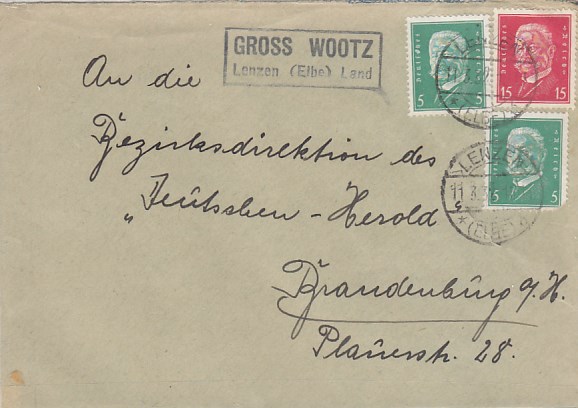 GROSS WOOTZ
Lenzen (Elbe) Land
An die
Bezirksdirektion des
„Deutschen-Herold
Brandenburg a/H.
Plauerstr. 28.
Deutsches Reich
5 5
Deutsches Reich
15 15
5
LENZEN
11.3.
(ELBE)
LENZEN
11.3.
(ELBE)